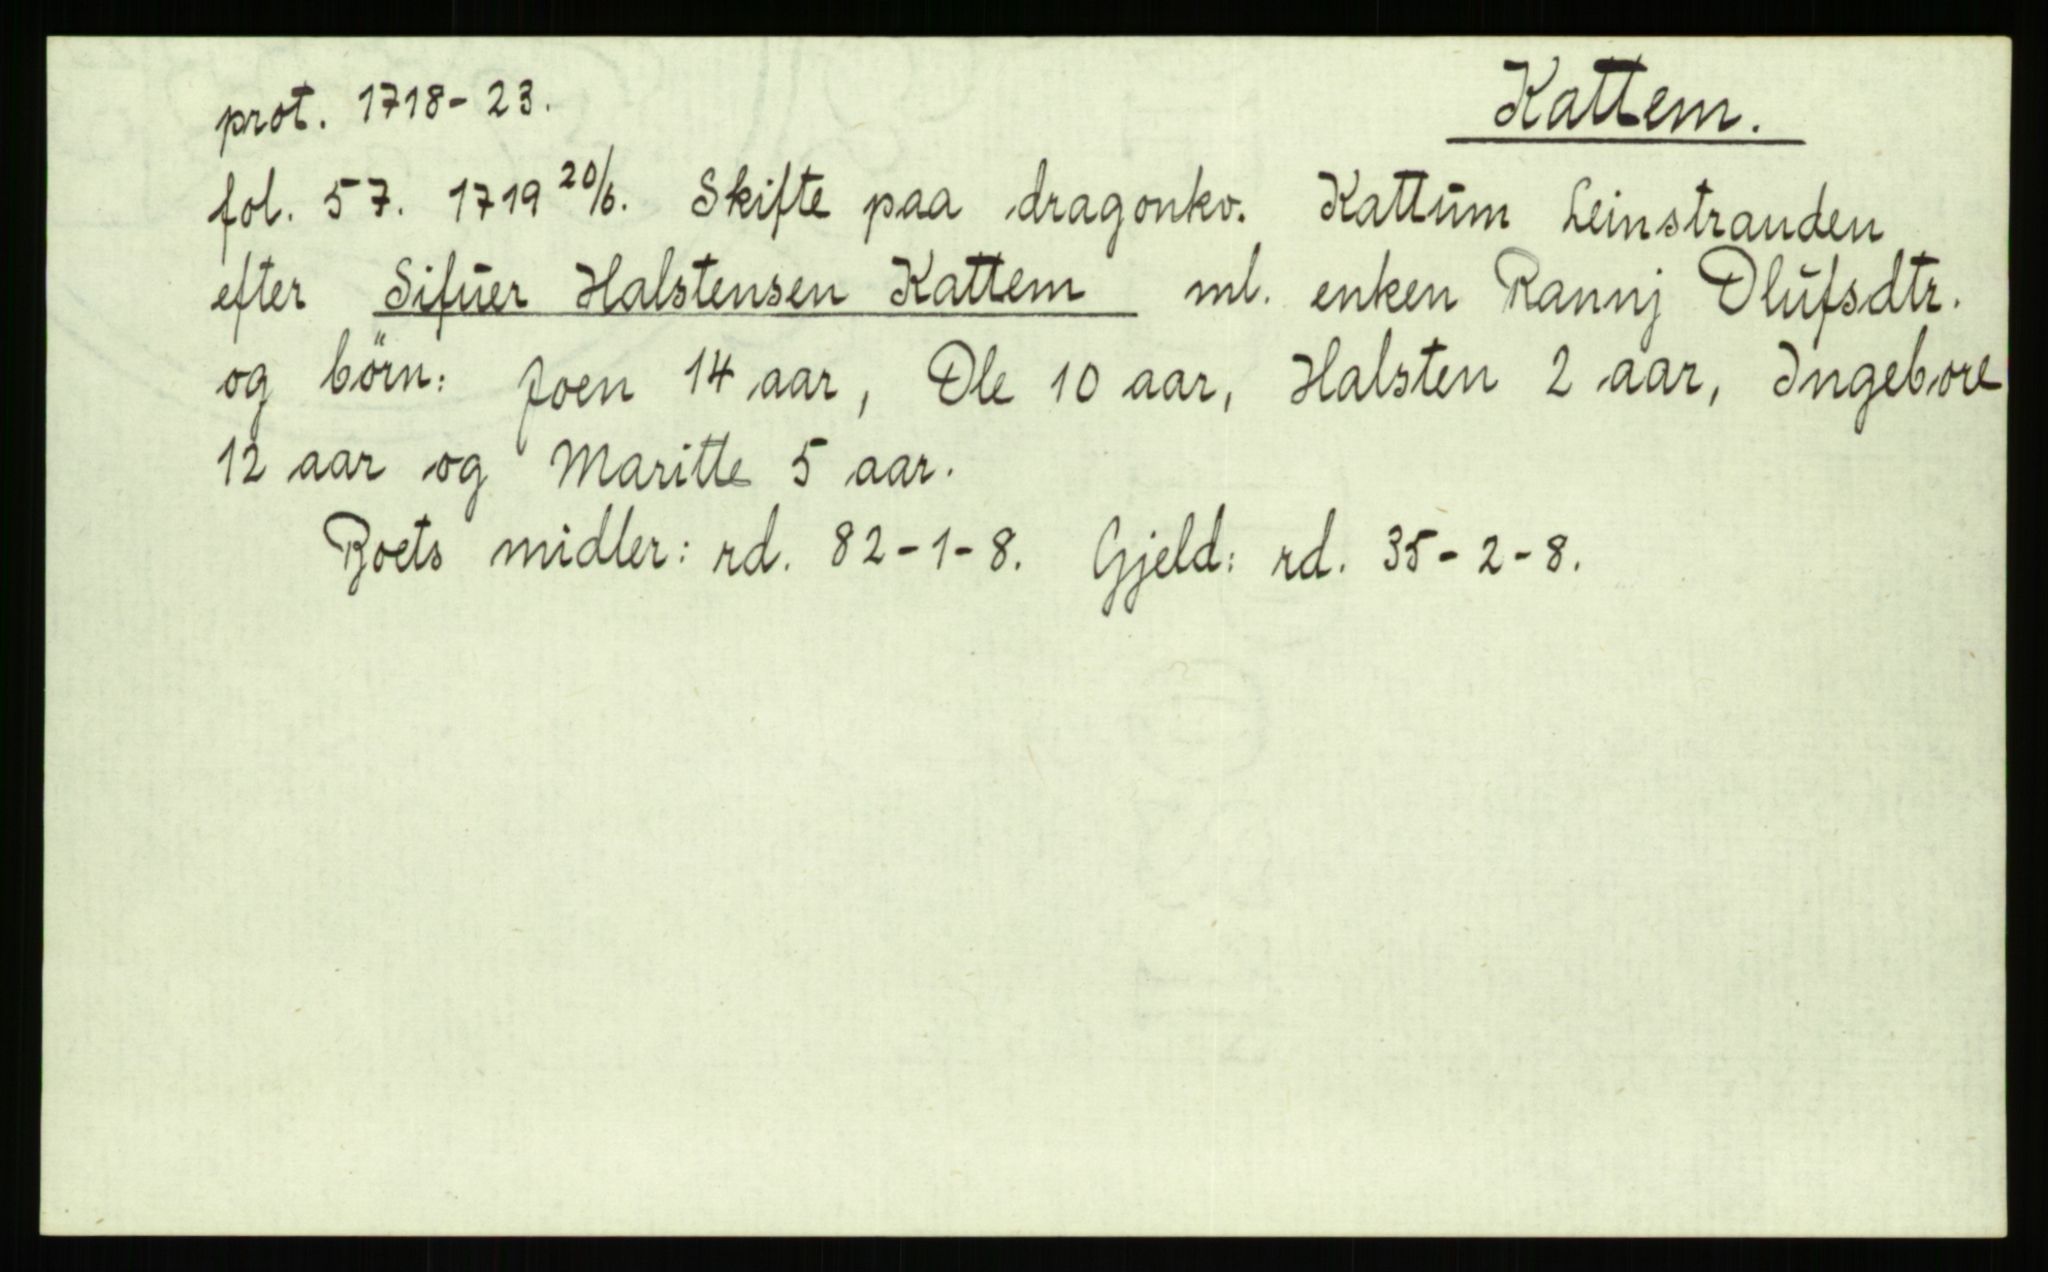 Kattem.
prot. 1718-23.
fol. 57. 1719 20/6. Skifte paa dragonkv. Kattum Leinstranden
efter Sifuer Halstensen Kattem ml. enken Rannj Olufsdtr.
og börn: Joen 14 aar, Ole 10 aar, Halsten 2 aar, Ingebore
12 aar og Maritte 5 aar.
Boets midler: rd. 82-1-8. Gjeld: rd. 35-2-8.